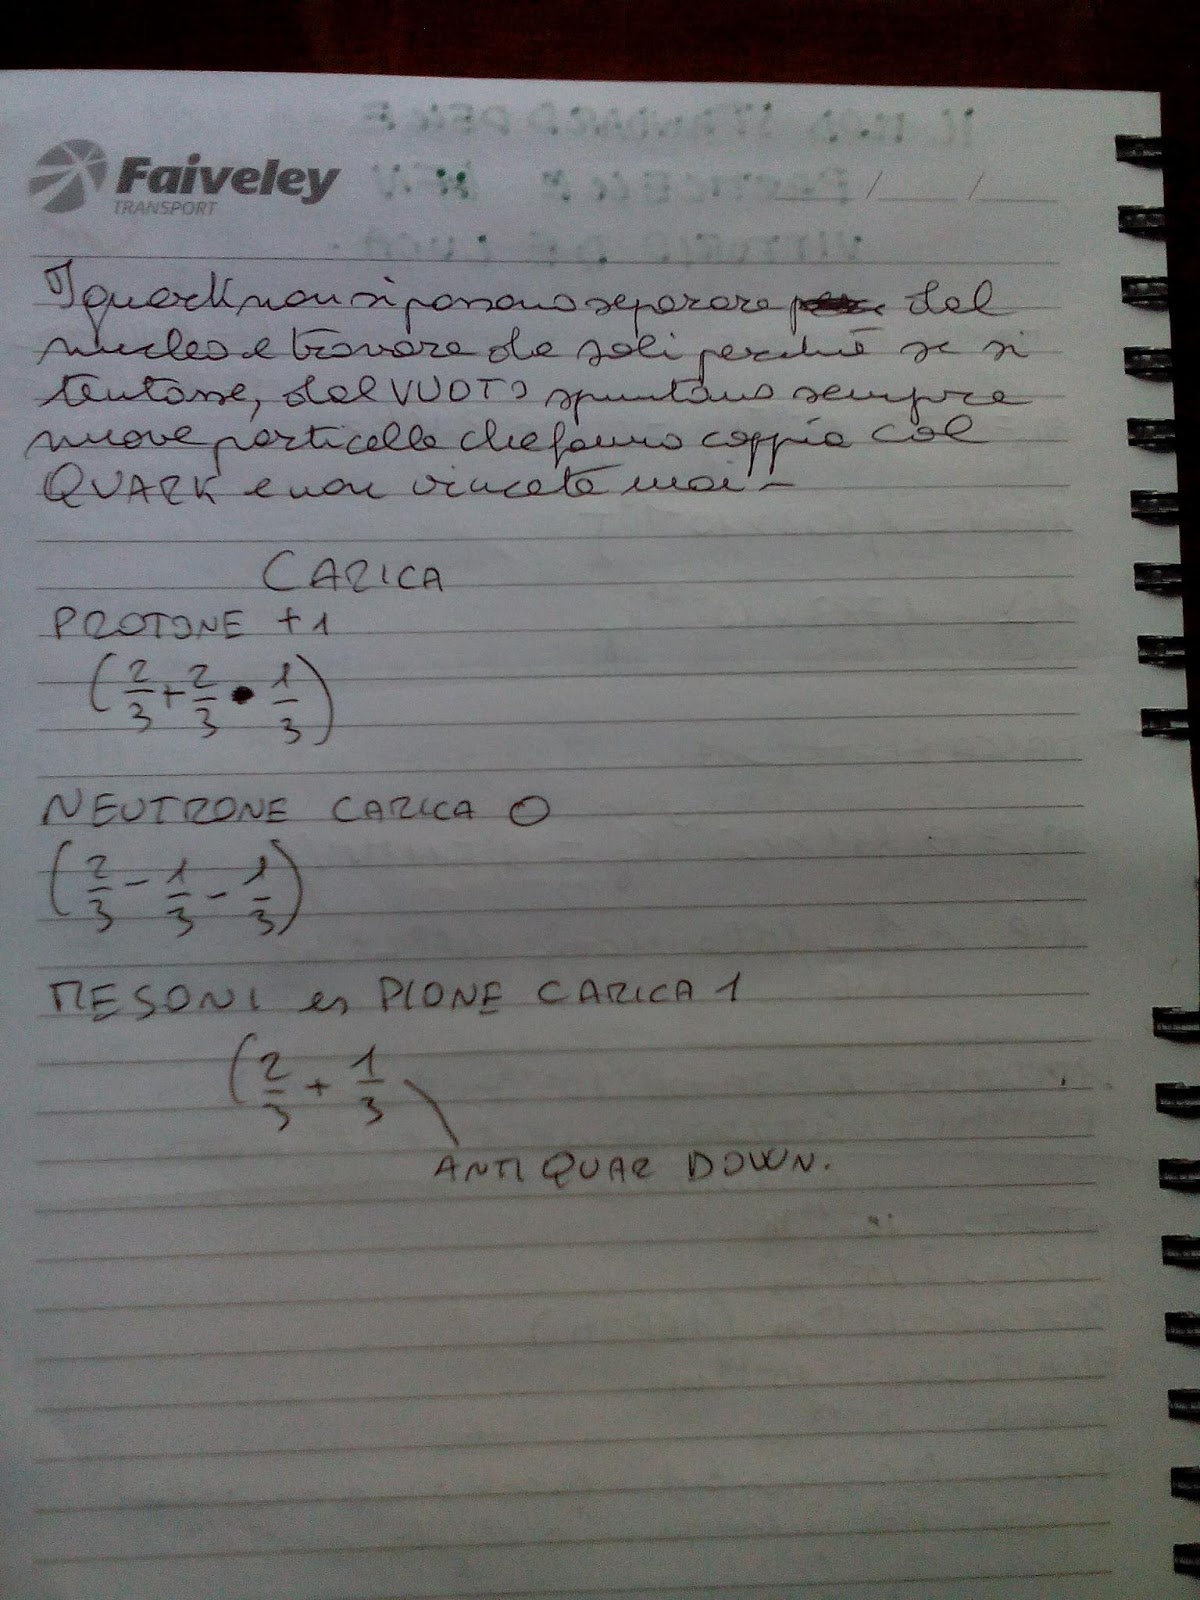 Faiveley
TRANSPORT
I quark non si possono separare dal
nucleo e trovare da soli perché se si
tentasse, dal VUOTO spuntano sempre
nuove particelle che fanno coppia col
QUARK e non vincete mai -
CARICA
PROTONE +1
(2/3 + 2/3 • 1/3)
NEUTRONE CARICA 0
(2/3 - 1/3 - 1/3)
MESONI es PIONE CARICA 1
(2/3 + 1/3
ANTI QUAR DOWN.